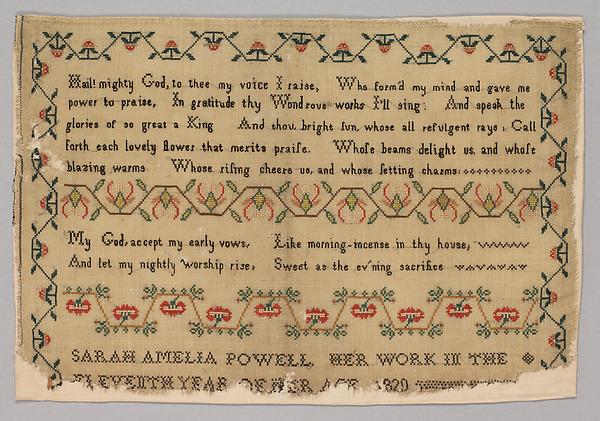 Hail! mighty God, to thee my voice I raise, Who form'd my mind and gave me
power to praise, In gratitude thy Wondrous works I'll sing; And speak the
glories of so great a King And thou bright sun, whose all refulgent rays, Call
forth each lovely flower that merits praise. Whoſe beams delight us, and whoſe
blazing warms Whose riſing cheers us, and whose ſetting charms:
My God, accept my early vows, Like morning-incense in thy house,
And let my nightly worship rise, Sweet as the ev'ning sacrifice
SARAH AMELIA POWELL HER WORK IN THE
ELEVENTH YEAR OF HER AGE 1820